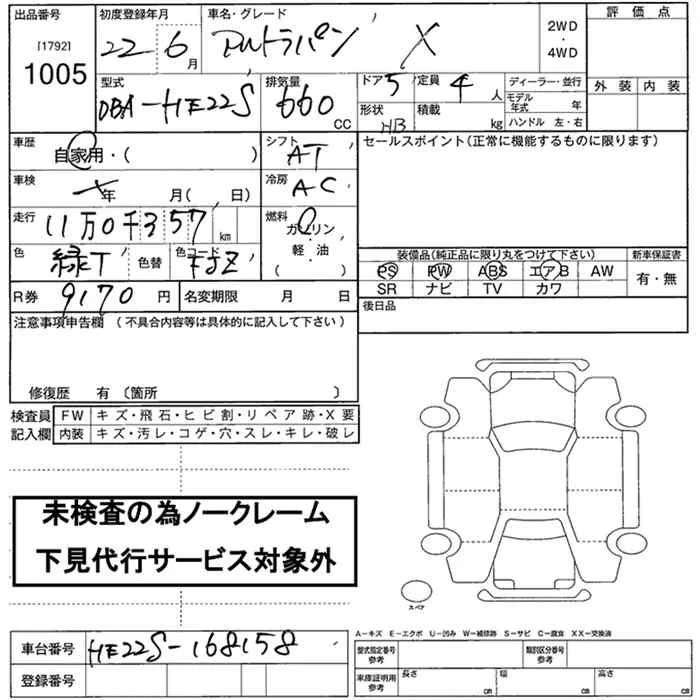 出品番号 初度登録年月 車名・グレード 2WD・4WD 評価点
[1792]
1005 22 6月 アルトラパン X
型式 排気量 ドア 5 定員 4人 ディーラー・並行 外装 内装
DBA-HE22S 660 CC 形状 HB 積載 kg モデル年式 年
ハンドル 左・右
車歴 自家用・( ) シフト AT セールスポイント(正常に機能するものに限ります)
車検 ×年 月( 日) 冷房 AC
走行 11万0千357 km 燃料 ガソリン・軽・油
色 緑T 色替 色コード 装備品(純正品に限り丸をつけて下さい) 新車保証書
PS PW ABS エアB AW 有・無
SR ナビ TV カワ
R券 9170円 名変期限 月 日 後日品
注意事項申告欄 (不具合内容等は具体的に記入して下さい)
修復歴 有 〔箇所 〕
検査員 FW キズ・飛石・ヒビ割・リペア跡・X要
記入欄 内装 キズ・汚レ・コゲ・穴・スレ・キレ・破レ
未検査の為ノークレーム
下見代行サービス対象外
スペア
A-キズ E-エクボ U-凹み W-補修跡 S-サビ C-腐食 XX-交換済
車台番号 HE22S-168158 型式指定番号 参考 類別区分番号 参考
登録番号 車庫証明用 参考 長さ cm 幅 cm 高さ cm